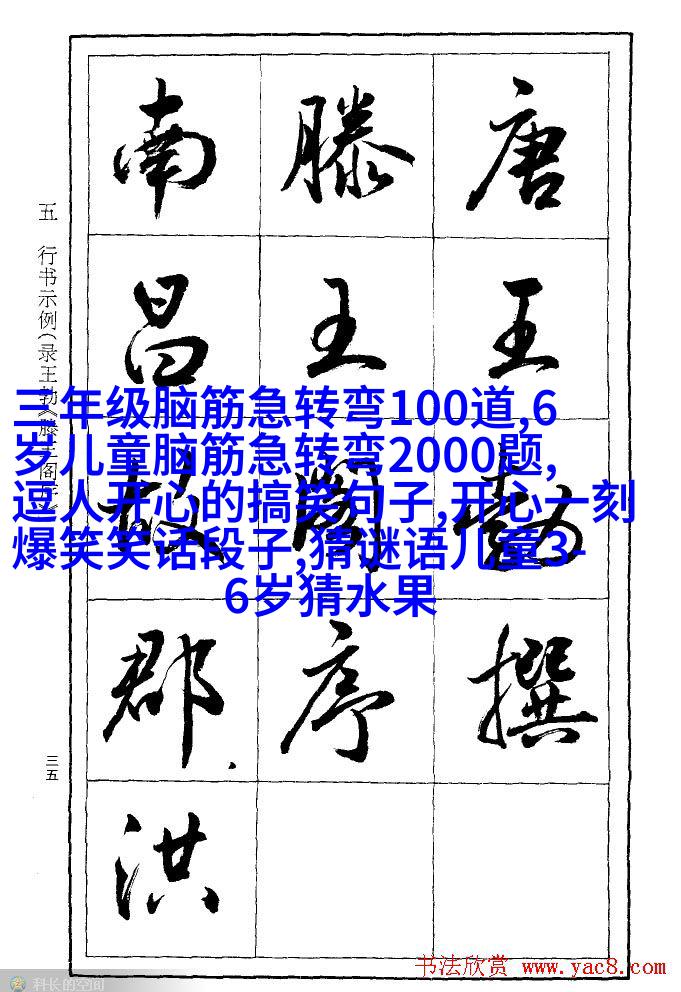 唐王勃撰
滕王阁序
南昌故郡洪
五 行书示例(录王勃《滕王阁序
三五
三年级脑筋急转弯100道,6
岁儿童脑筋急转弯2000题,
逗人开心的搞笑句子,开心一刻
爆笑笑话段子,猜谜语儿童3-
6岁猜水果
书法欣赏 www.yac8.com
科长的空间